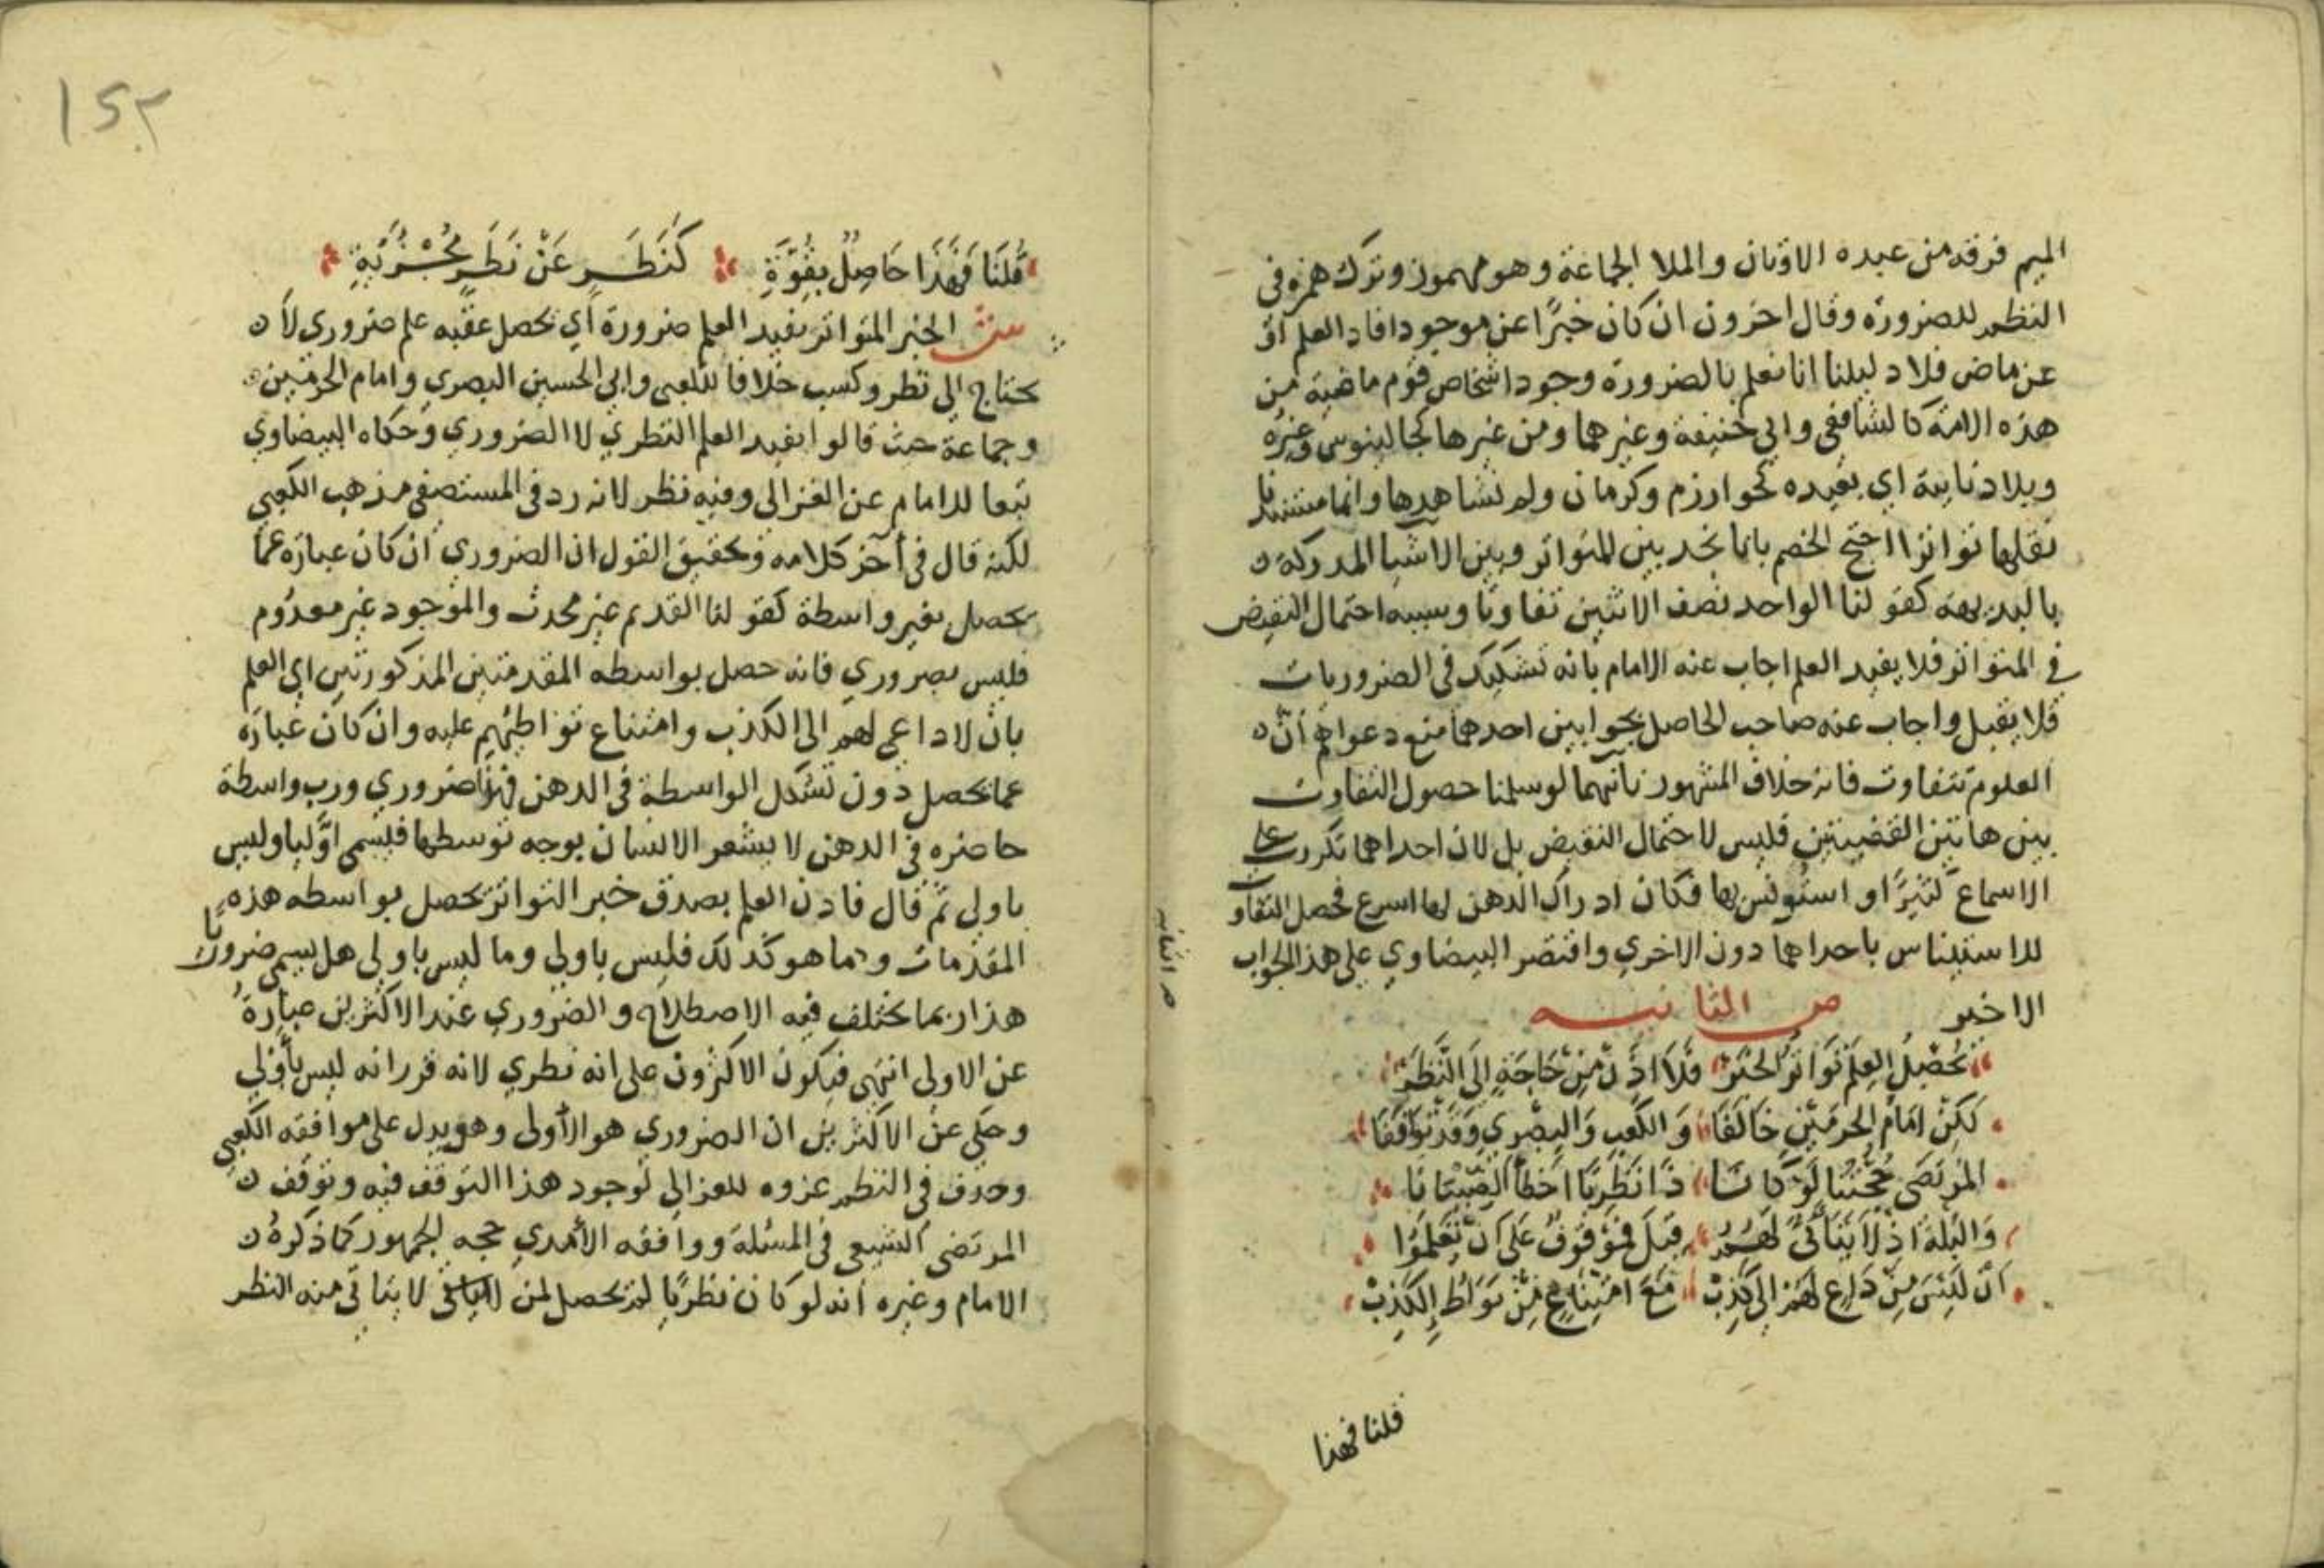 الميم فرقة من عبدة الاوثان والملا الجماعة وهو مهموز وترك همزه في
النظم للضرورة وقال اخرون ان كان خبرًا عن موجود افاد العلم او
عن ماض فلا دليلنا انا نعلم بالضرورة وجود اشخاص قوم ماضية من
هذه الامة كالشافعي وابي حنيفة وغيرهما ومن غيرها كجالينوس وغيره
وبلاد نايية اي بعيده كخوارزم وكرمان ولم نشاهدها وانما مستندنا
نقلها تواترا احتج الخصم بانا نجد بين المتواتر وبين الاشيا المدركة
بالبديهة كقولنا الواحد نصف الاثنين تفاوتا وسببه احتمال النقيض
في المتواتر فلا يفيد العلم اجاب عنه الامام بانه تشكيك في الضروريات
فلا يقبل واجاب عنه صاحب الحاصل بجوابين احدهما منع دعواهم ان
العلوم تتفاوت فانه خلاف المشهور ثانيهما لو سلمنا حصول التفاوت
بين هاتين القضيتين فليس لاحتمال النقيض بل لان احداهما تكررت على
الاسماع كثيرًا واستونس بها فكان ادراك الذهن لها اسرع فحصل التفاوت
للاستيناس باحداهما دون الاخري واقتصر البيضاوي على هذا الجواب
الاخير ص الثانيه
تحْصِيلُ العِلمِ تَوَاترُ الخبَرْ فَلاَ اذَنْ مِنْ حَاجَةٍ إلَى النَّظَرْ
لَكِنْ امَامُ الحَرمَيْنِ خَالَفَا وَالكَعبِي وَالبصْرِي وَقَدْ تَوَقفَا
المُرتَضَى حُجَّتُنَا لَوْ كَانَا ذَا نَظَرِيًّا اخطأ الصِّبْيَانَا
وَالبُلْهَ اذْ لاَ يَتَأتَّى لَهُمُ قيلَ فَمَوْقوفٌ عَلى ان تَعلَمُوا
ان لَيْسَ مِنْ دَاعٍ لَهُمْ إلى كَذِبْ مَعَ امْتِنَاعٍ مِنْ تَوَاطُؤ الكَذِبْ
قلنا فهذا
١٥٢
قُلنَا فَهَذَا حَاصِلٌ بِقُوَّةِ كَنَظَرٍ عَنْ نَظَرٍ مُجْزِيَةِ
ش الخبر المتواتر يفيد العلم ضرورة اي يحصل عقبه علم ضروري لا
يحتاج الي نظر وكسب خلافا للكعبي وابي الحسين البصري وامام الحرمين
وجماعة حيث قالوا يفيد العلم النظري لا الضروري وحكاه البيضاوي
تبعا للامام عن الغزالي وفيه نظر لانه رد في المستصفى مذهب الكعبي
لكنه قال في آخر كلامه وتحقيق القول ان الضروري ان كان عبارة عما
يحصل بغير واسطة كقولنا القديم غير محدث والموجود غير معدوم
فليس بضروري فانه حصل بواسطه المقدمتين المذكورتين اي العلم
بان لا داعي لهم الى الكذب وامتناع تواطئهم عليه وان كان عبارة
عما يحصل دون تشكل الواسطة في الذهن فهذا ضروري ورب واسطة
حاضره في الذهن لا يشعر الانسان بوجه توسطها فيسمى اوّليا وليس
باولي ثم قال فاذن العلم بصدق خبر التواتر تحصل بواسطه هذه
المقدمات وما هو كذلك فليس باولي وما ليس باولي هل يسمى ضروريا
هذا ربما يختلف فيه الاصطلاح والضروري عند الاكثرين عبارة
عن الاولى انتهى فيكون الاكثرون على انه نظري لانه قرر انه ليس باولي
وحكي عن الاكثرين ان الضروري هو الاولى وهو يدل على موافقه الكعبي
وحذف في النظم عزوه للغزالي لوجود هذا التوقف فيه وتوقف
المرتضى الشيعي في المسئلة ووافقه الآمدي حجه الجمهور كما ذكره
الامام وغيره انه لو كان نظريًا لم يحصل لمن لا يتاتى منه النظر